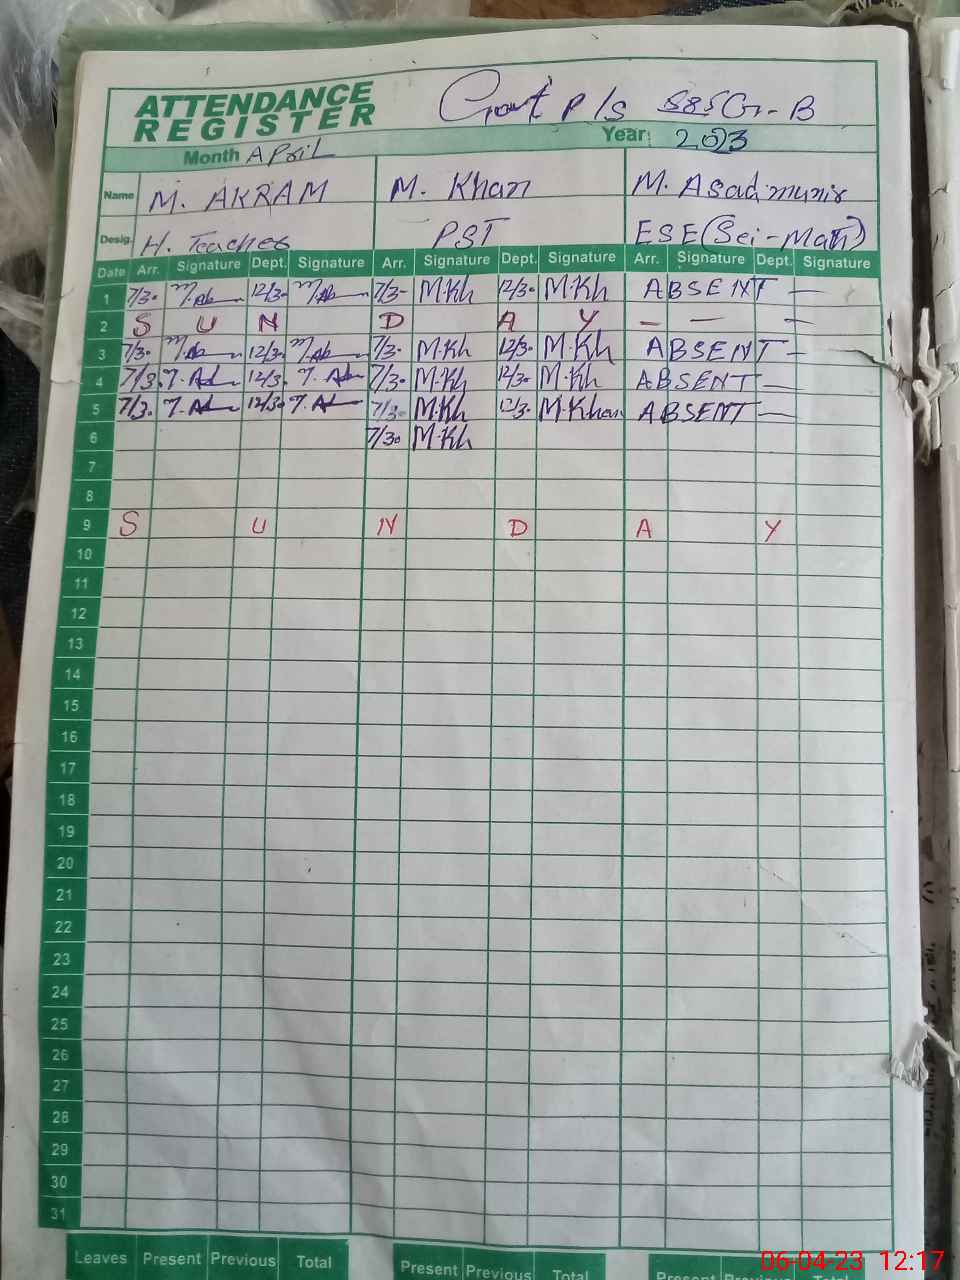 ATTENDANCE REGISTER Govt P/S 585Gr-B
Month April Year: 2023
Name M. AKRAM M. Khan M. Asad munir
Desig. H. Teacher PST ESE (Sci-Math)
Date Arr. Signature Dept. Signature Arr. Signature Dept. Signature Arr. Signature Dept. Signature
1 7/30 12/30 7/30 M.Kh 12/30 M.Kh ABSENT —
2 S U N D A Y — — —
3 7/30 12/30 7/30 M.Kh 12/30 M.Kh ABSENT —
4 7/30 12/30 7/30 M.Kh 12/30 M.Kh ABSENT —
5 7/30 12/30 7/30 M.Kh 12/30 M.Khan ABSENT —
6 7/30 M.Kh
7
8
9 S U N D A Y
10
11
12
13
14
15
16
17
18
19
20
21
22
23
24
25
26
27
28
29
30
31
Leaves Present Previous Total Present Previous Total Present Previous Total
06-04-23 12:17